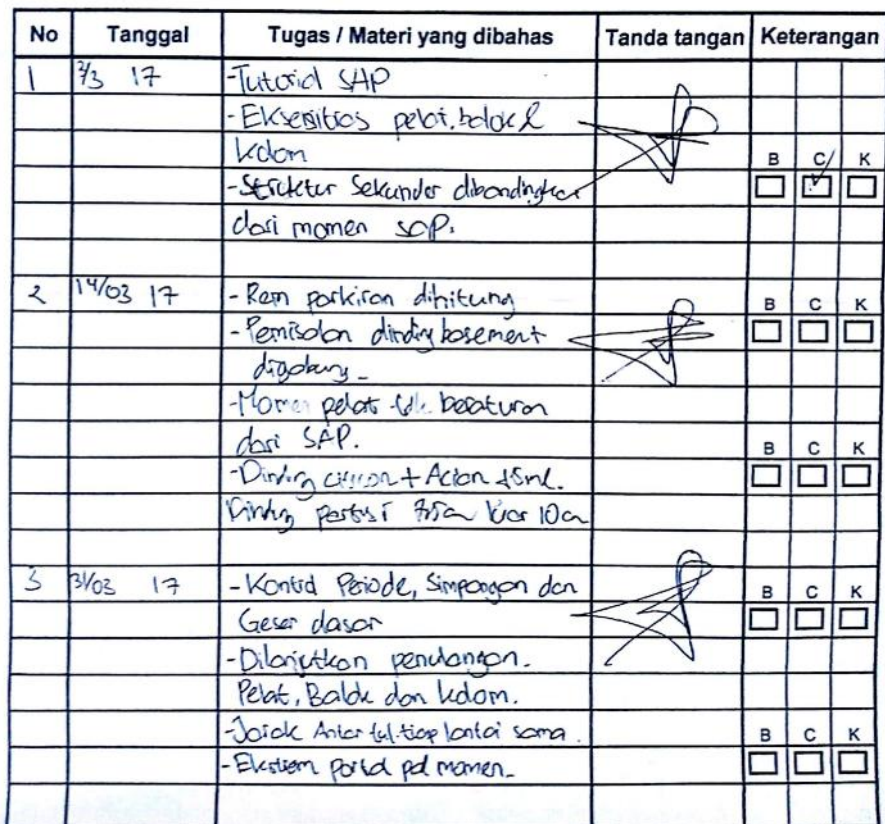 No Tanggal Tugas / Materi yang dibahas Tanda tangan Keterangan
1 7/3 17 -Tutorial SAP
-Eksentisitas pelat, balok &
Kolom
B C K
-Struktur Sekunder dibandingkan
dari momen SAP.
2 14/03 17 -Ram parkiran dihitung
B C K
-Pemisalan dinding basement
digabung
-Momen pelat beraturan
dari SAP.
B C K
-Dinding + Acian
Dinding partisi 10cm
3 31/03 17 -Kontrol Periode, Simpangan dan
B C K
Geser dasar
-Dilanjutkan penulangan.
Pelat, Balok dan kolom.
-Jarak Antar tul. tiap lantai sama.
B C K
-Ekstrem portal momen